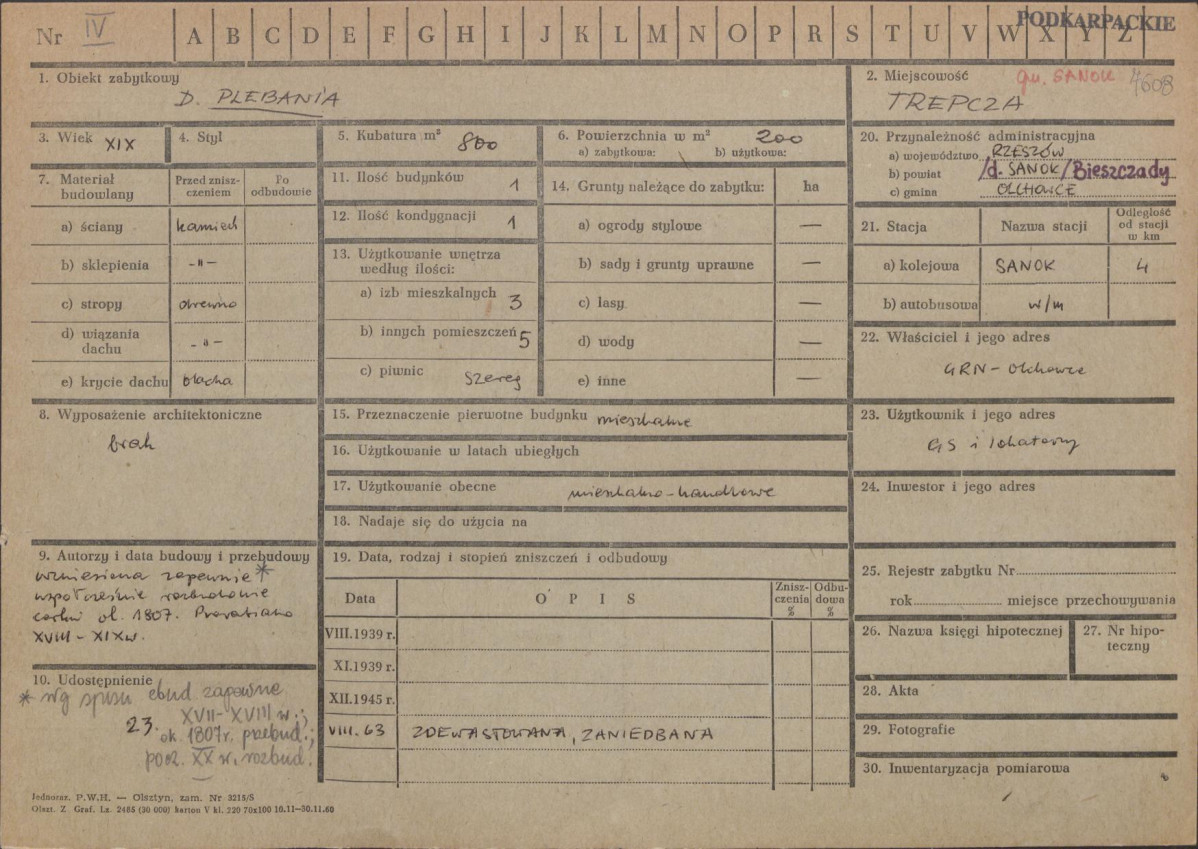 Nr IV A B C D E F G H I J K L M N O P R S T U V W X Y Z PODKARPACKIE
1. Obiekt zabytkowy
D. PLEBANIA
2. Miejscowość gm. SANOK 4608
TREPCZA
3. Wiek XIX
4. Styl
5. Kubatura m³ 800
6. Powierzchnia w m² 200
a) zabytkowa: b) użytkowa:
7. Materiał budowlany
Przed zniszczeniem
Po odbudowie
a) ściany kamień
b) sklepienia -"-
c) stropy drewno
d) wiązania dachu -"-
e) krycie dachu blacha
8. Wyposażenie architektoniczne
brak
9. Autorzy i data budowy i przebudowy
wzniesiona zapewnie *
współcześnie
cerkwi ok. 1807.
XVIII - XIX w.
10. Udostępnienie
* wg spisu ebud zapewne
XVII-XVIII w.;
23. ok. 1807r. przebud.;
pocz. XX w. rozbud.
11. Ilość budynków 1
12. Ilość kondygnacji 1
13. Użytkowanie wnętrza
według ilości:
a) izb mieszkalnych 3
b) innych pomieszczeń 5
c) piwnic szereg
14. Grunty należące do zabytku: ha
a) ogrody stylowe —
b) sady i grunty uprawne —
c) lasy —
d) wody —
e) inne —
15. Przeznaczenie pierwotne budynku mieszkalne
16. Użytkowanie w latach ubiegłych
17. Użytkowanie obecne mieszkalno-handlowe
18. Nadaje się do użycia na
19. Data, rodzaj i stopień zniszczeń i odbudowy
Data
O P I S
Zniszczenia %
Odbudowa %
VIII.1939 r.
XI.1939 r.
XII.1945 r.
VIII. 63 ZDEWASTOWANA, ZANIEDBANA
20. Przynależność administracyjna
a) województwo RZESZÓW
b) powiat /d. SANOK/Bieszczady
c) gmina OLCHOWCE
21. Stacja
Nazwa stacji
Odległość od stacji w km
a) kolejowa SANOK 4
b) autobusowa w/m
22. Właściciel i jego adres
GRN - Olchowce
23. Użytkownik i jego adres
GS i lokatorzy
24. Inwestor i jego adres
25. Rejestr zabytku Nr
rok miejsce przechowywania
26. Nazwa księgi hipotecznej
27. Nr hipoteczny
28. Akta
29. Fotografie
30. Inwentaryzacja pomiarowa
Jednoraz. P.W.H. — Olsztyn, zam. Nr 3215/S
Olszt. Z. Graf. Lz. 2485 (30 000) karton V kl. 220 70x100 10.11—30.11.60